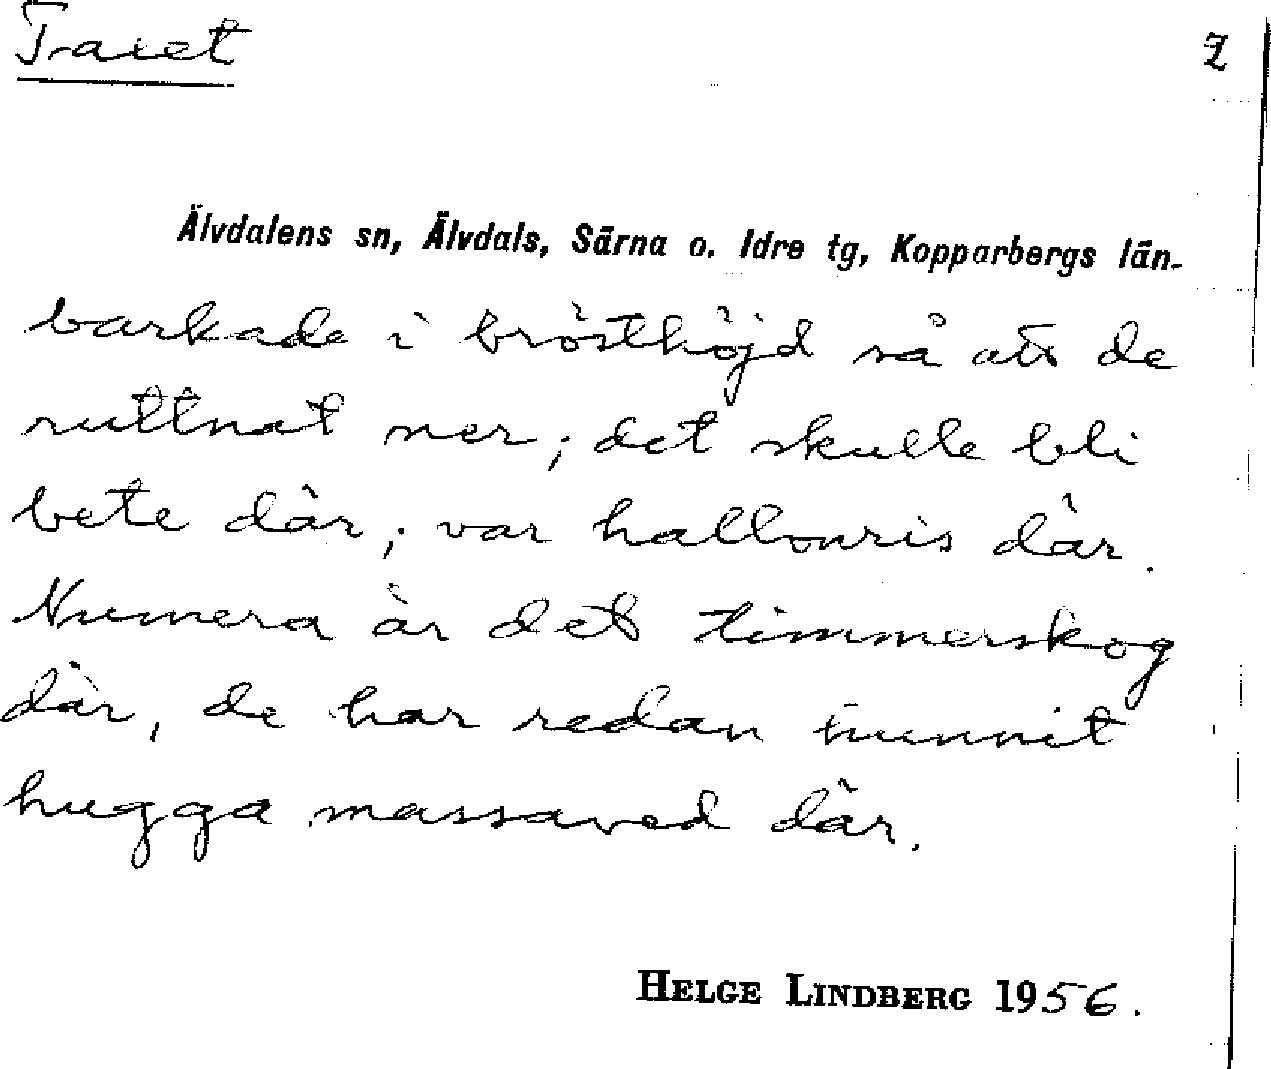 Traiet
2
Älvdalens sn, Älvdals, Särna o. Idre tg, Kopparbergs län.
barkade i brösthöjd så att de
ruttnat ner; det skulle bli
bete där; var hallonris där.
Numera är det timmerskog
där, de har redan hunnit
hugga massaved där.
HELGE LINDBERG 1956.